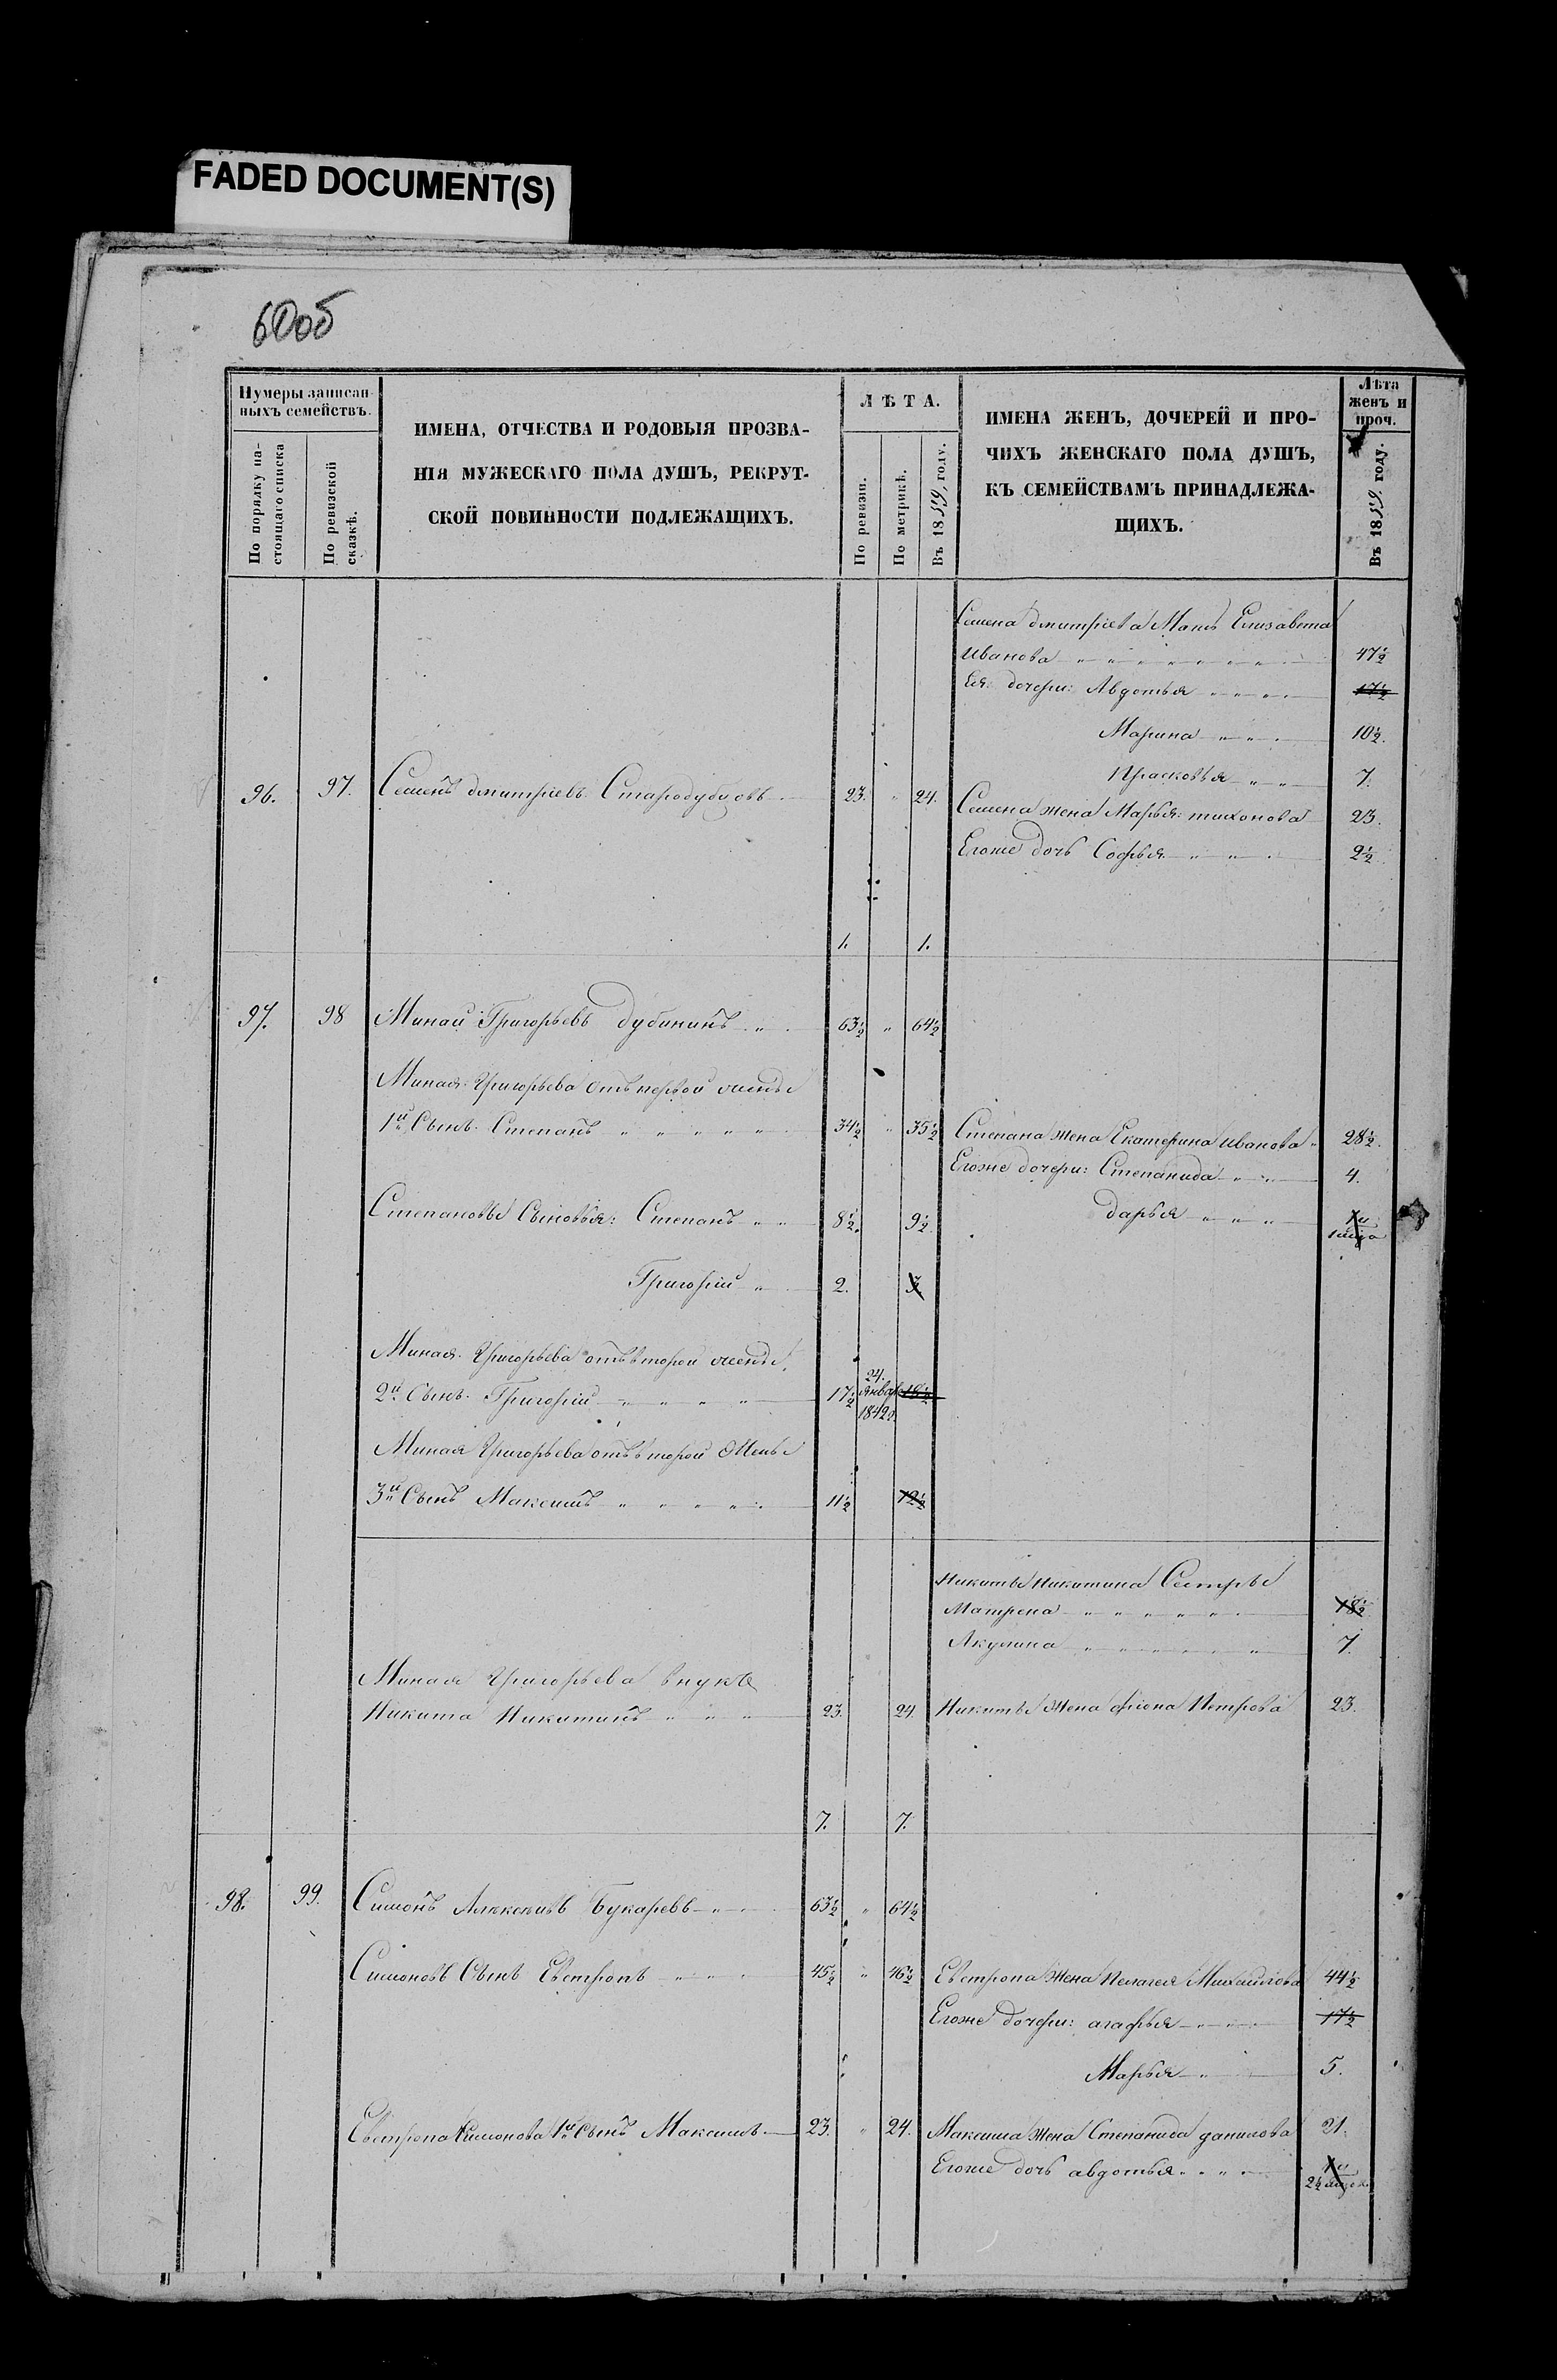 FADED DOCUMENT(S)
60об
Нумеры записан-
ныхъ семействъ.
По порядку на-
стоящаго списка
По ревизской
сказкѣ.
ИМЕНА, ОТЧЕСТВА И РОДОВЫЯ ПРОЗВА-
НІЯ МУЖЕСКАГО ПОЛА ДУШЪ, РЕКРУТ-
СКОЙ ПОВИННОСТИ ПОДЛЕЖАЩИХЪ.
ЛѢТА.
По ревизіи.
По метрикѣ.
Въ 1859, году.
ИМЕНА ЖЕНЪ, ДОЧЕРЕЙ И ПРО-
ЧИХЪ ЖЕНСКАГО ПОЛА ДУШЪ,
КЪ СЕМЕЙСТВАМЪ ПРИНАДЛЕЖА-
ЩИХЪ.
Лѣта
женъ и
проч.
Въ 1859. году.
Семена дмитріева Мать Елизавета
Иванова 47½
Ея: дочери: Авдотья 17½
Марина 10½.
Прасковья 7.
96. 97. Семенъ дмитріевъ Стародубцовъ 23. " 24.
Семена жена Марья: тихонова 23.
Егоже дочь Софья 2½
1. 1.
97. 98 Минай Григорьевъ дубининъ 63½ " 64½
Миная Григорьева отъ первой жены
1й Сынъ Степанъ 34½ " 35½ Степана жена Екатерина иванова 28½.
Егоже дочери: Степанида 4.
Степановы Сыновья: Степанъ 8½. 9½ дарья 1 и
1 мца
Григорій 2. 3
Миная Григорьева отъ второй жены
24.
2й Сынъ Григорій 17½ январ 18½
1842г.
Миная Григорьева отъ второй жены
3й Сынъ Максимъ 11½ 12½
Никиты Никитина Сестры
Матрена 18½
Акулина 7.
Миная Григорьева внукъ
Никита Никитинъ 23. 24. Никиты жена фіона Петрова 23.
7. 7.
98. 99. Симонъ Алексѣивъ Букаревъ 63½ " 64½
Симоновъ Сынъ Евстропъ 45½ " 46½ Евстропа жена пелагея Михайлова 44½
Егоже дочери: агафья 17½
Марья 5.
Евстропа Симонова 1й Сынъ Максимъ 23. " 24. Максима жена Степанида данилова 21.
Егоже дочь авдотья 1 и
2½ мцов.